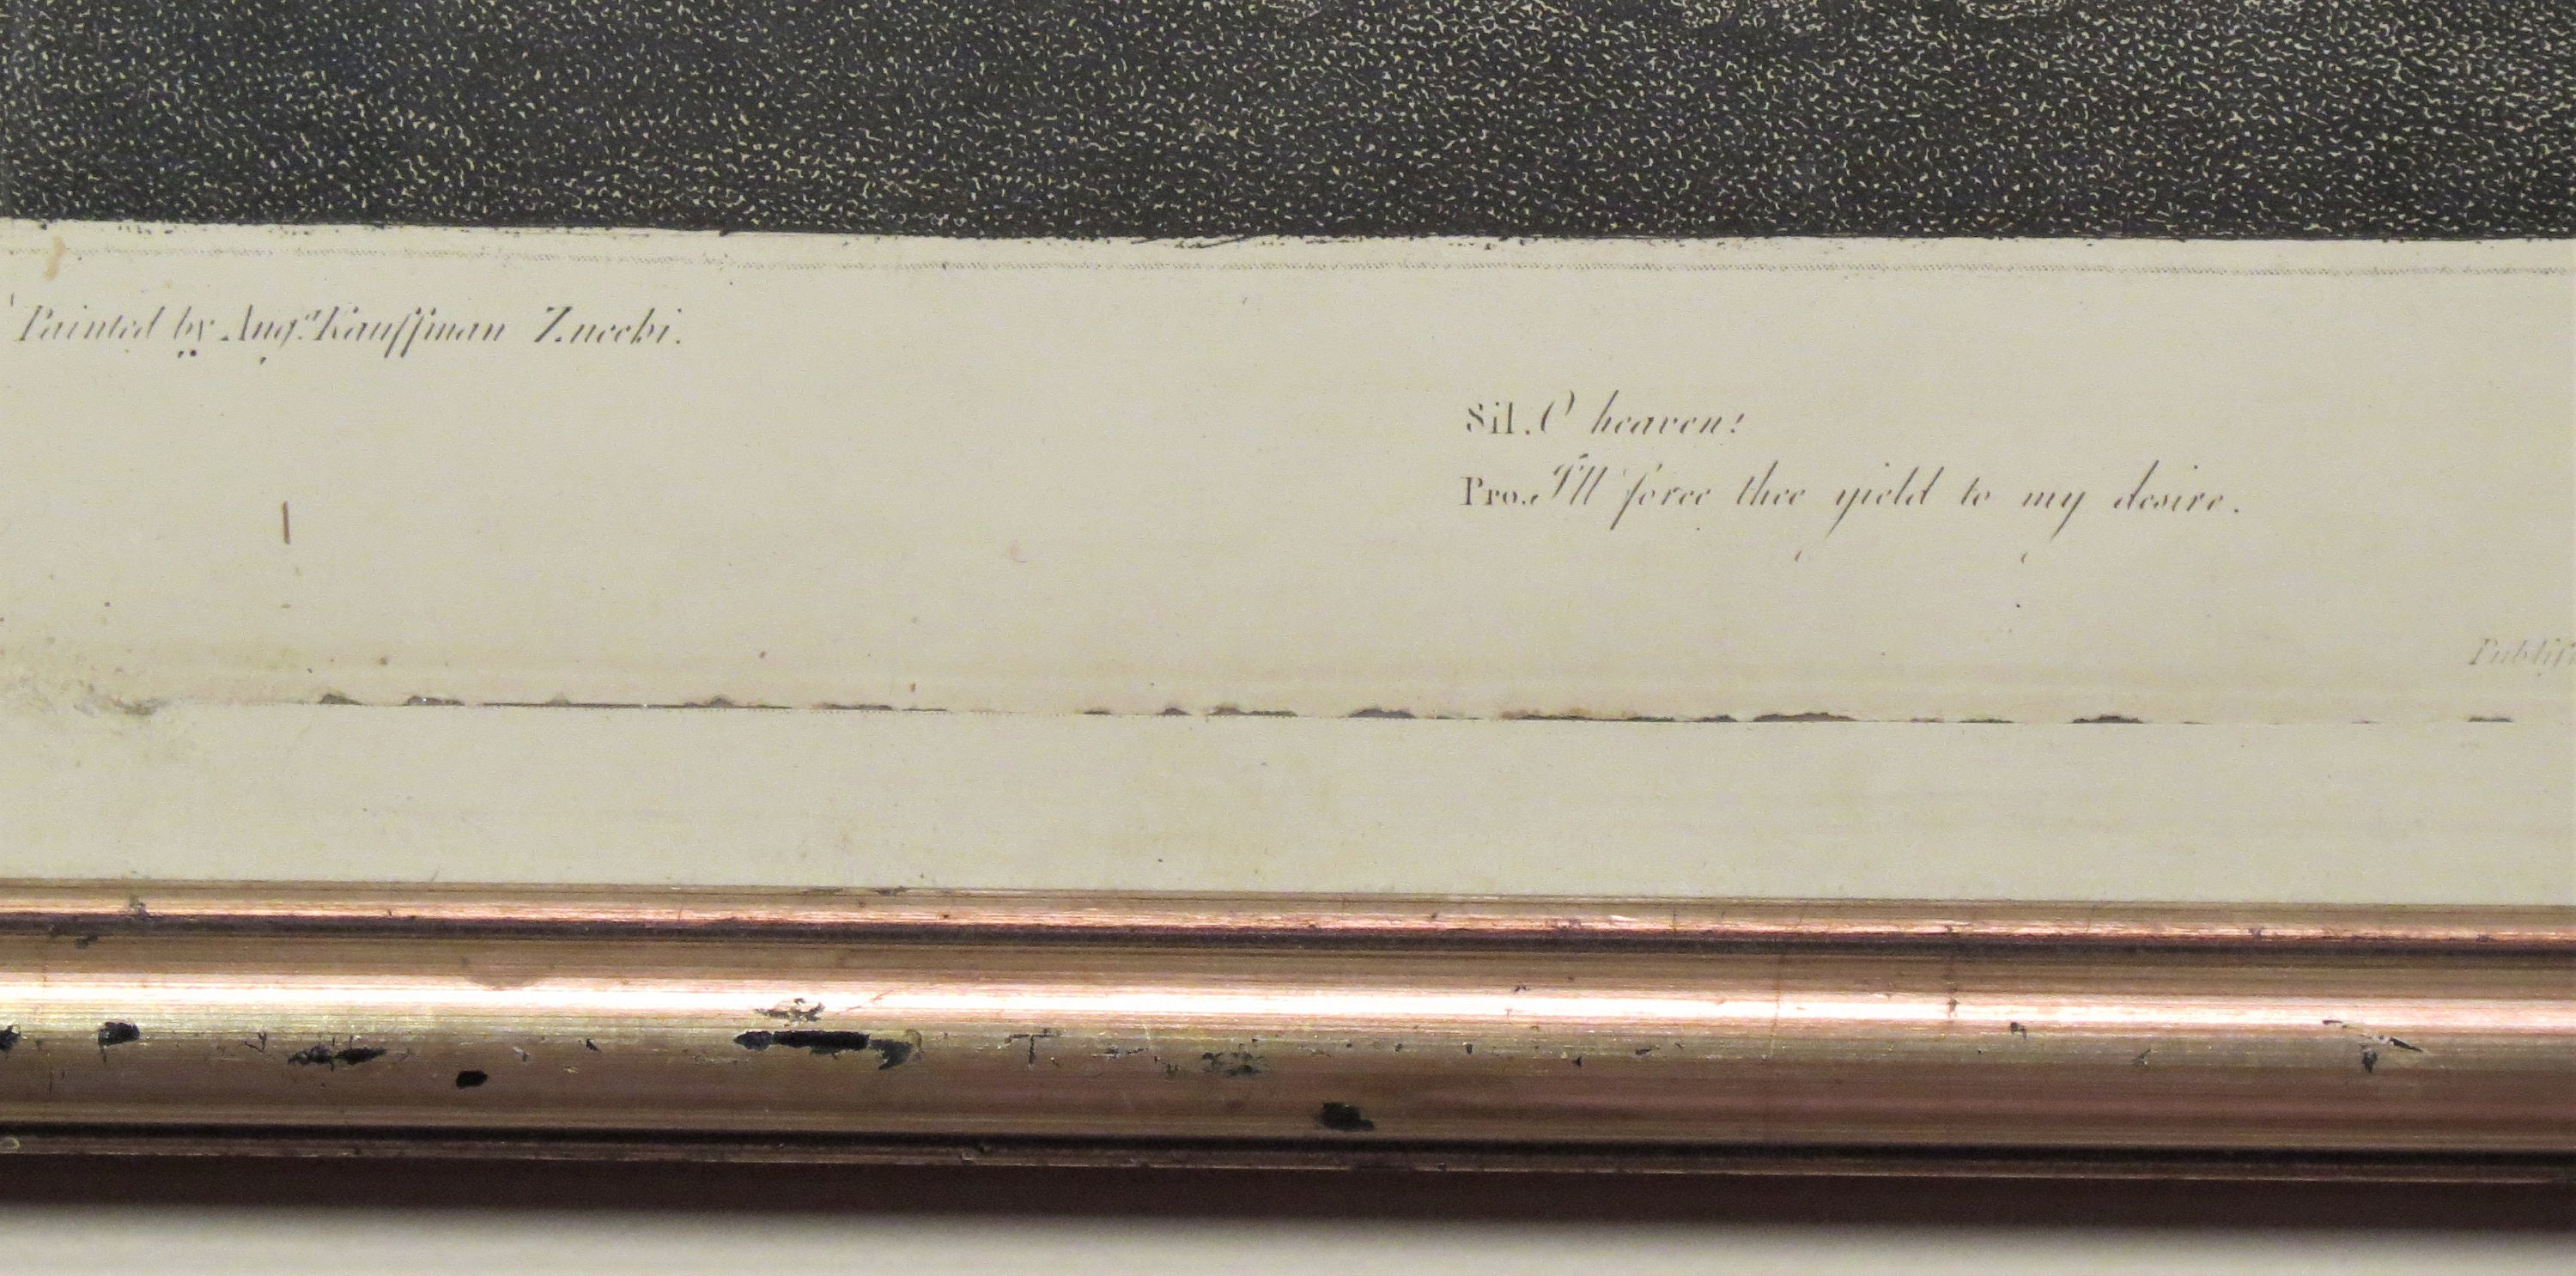 Painted by Ang.ª Kauffman Zucchi.
Sil. O heaven!
Pro. I'll force thee yield to my desire.